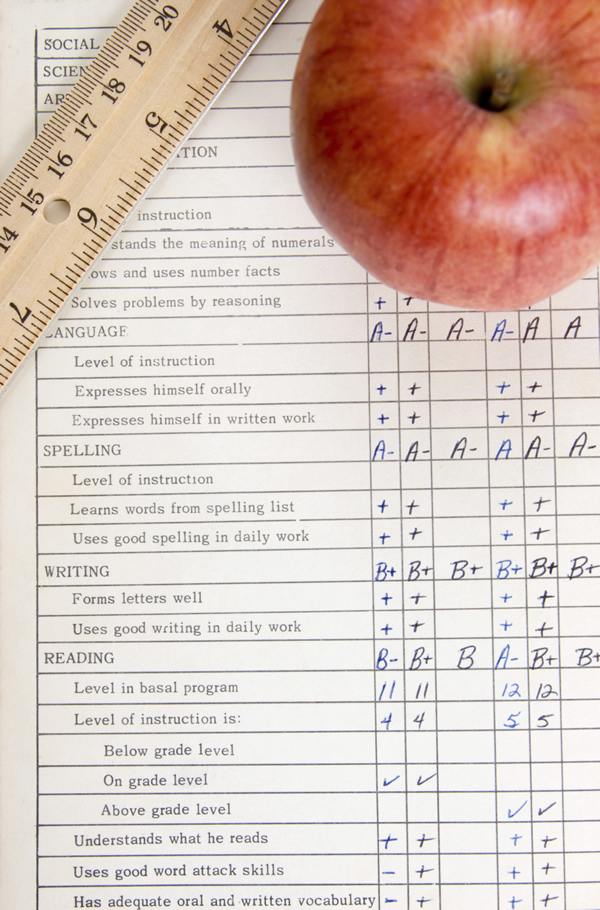 20
19
18
17
16
15
14
4
5
6
7
SOCIAL
SCIEN
AR
TION
instruction
stands the meaning of numerals
ows and uses number facts
Solves problems by reasoning + +
LANGUAGE A- A- A- A- A A
Level of instruction
Expresses himself orally + + + +
Expresses himself in written work + + + +
SPELLING A- A- A- A A- A-
Level of instruction
Learns words from spelling list + + + +
Uses good spelling in daily work + + + +
WRITING B+ B+ B+ B+ B+ B+
Forms letters well + + + +
Uses good writing in daily work + + + +
READING B- B+ B A- B+ B+
Level in basal program 11 11 12 12
Level of instruction is: 4 4 5 5
Below grade level
On grade level ✓ ✓
Above grade level ✓ ✓
Understands what he reads + + + +
Uses good word attack skills - + + +
Has adequate oral and written vocabulary - + + +